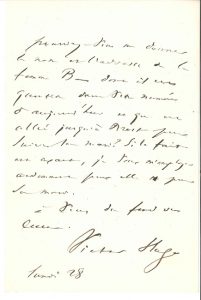 pouvez-vous me donner
le nom et l'adresse de la
femme B– dont il est
question dans votre numéro
d'aujourd'hui et qui est
allée jusqu'à Brest pour
suivre son mari? Si le fait
est exact, je
pour elle et pour
son mari.
à vous du fond du
cœur.
Victor Hugo
lundi 28